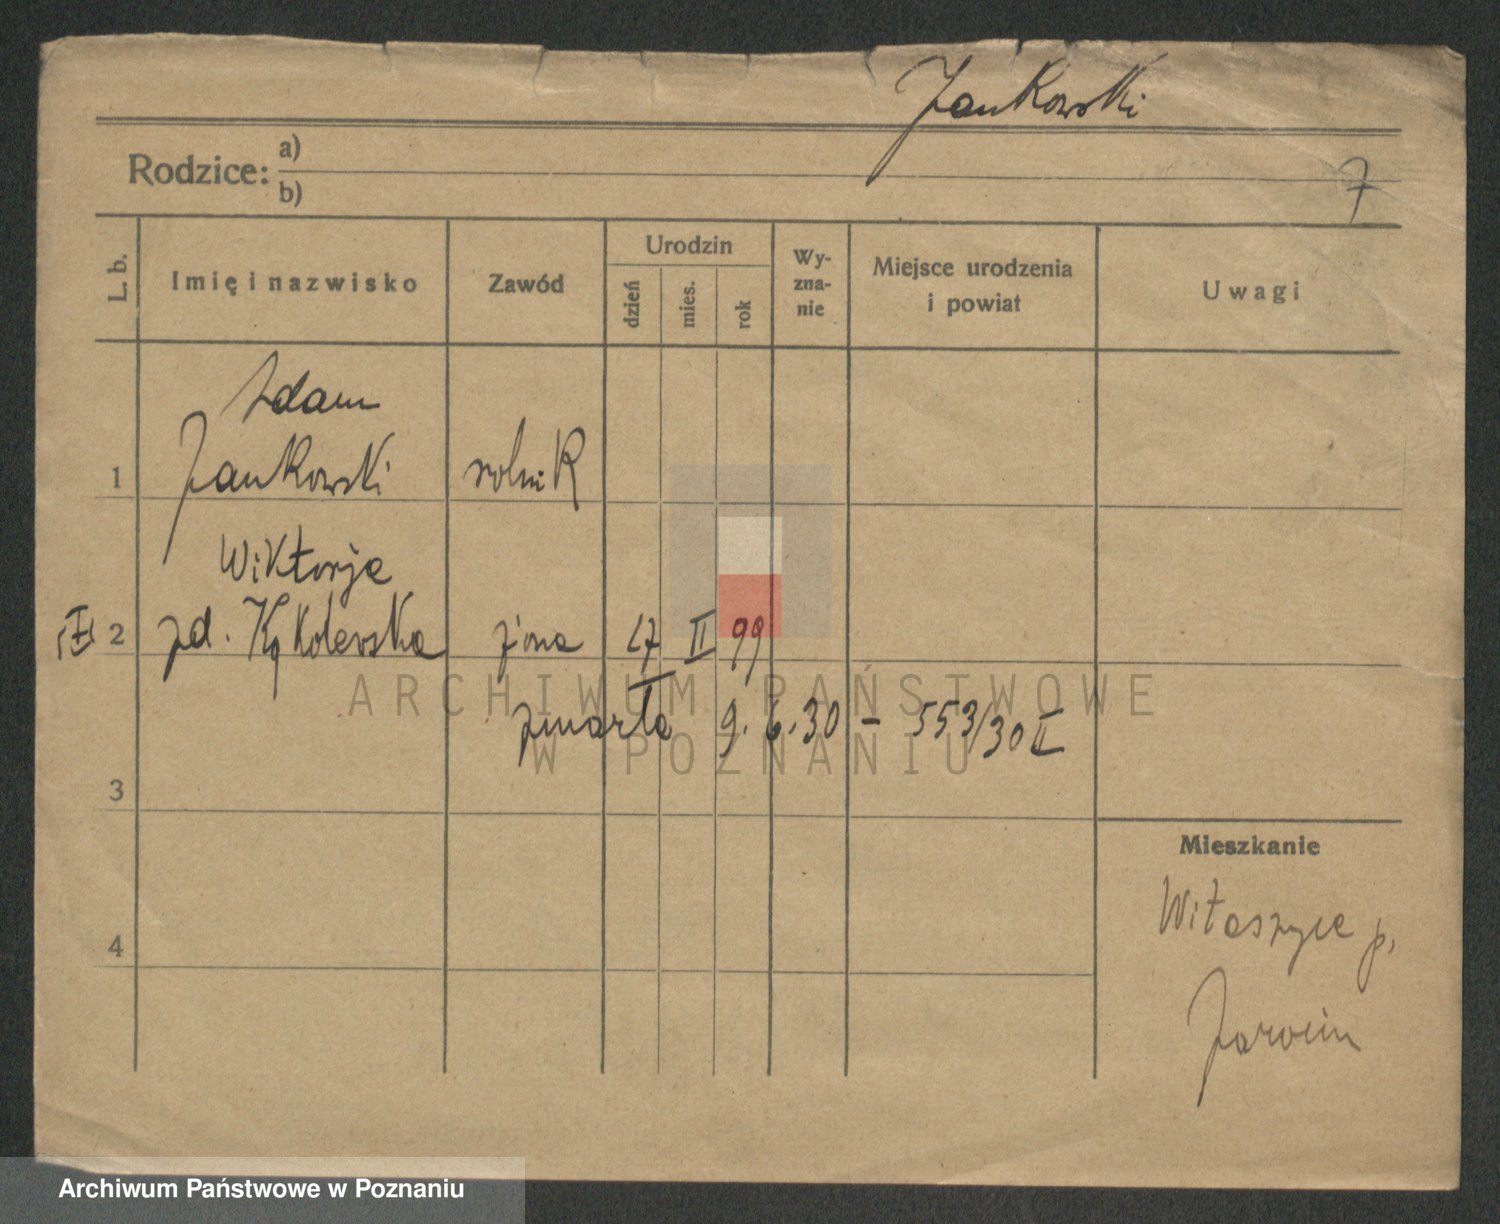 Jankowski
Rodzice: a)
b)
7
L. b.
Imię i nazwisko
Zawód
Urodzin
dzień
mies.
rok
Wy-
zna-
nie
Miejsce urodzenia
i powiat
Uwagi
Adam
1 Jankowski rolnik
Wiktorja
2 zd. Kąkolewska żona 17 II 99
zmarła 9. 6. 30 – 553/30 II
3
4
Mieszkanie
Witaszyce p.
Jarocin
ARCHIWUM PAŃSTWOWE
W POZNANIU
Archiwum Państwowe w Poznaniu